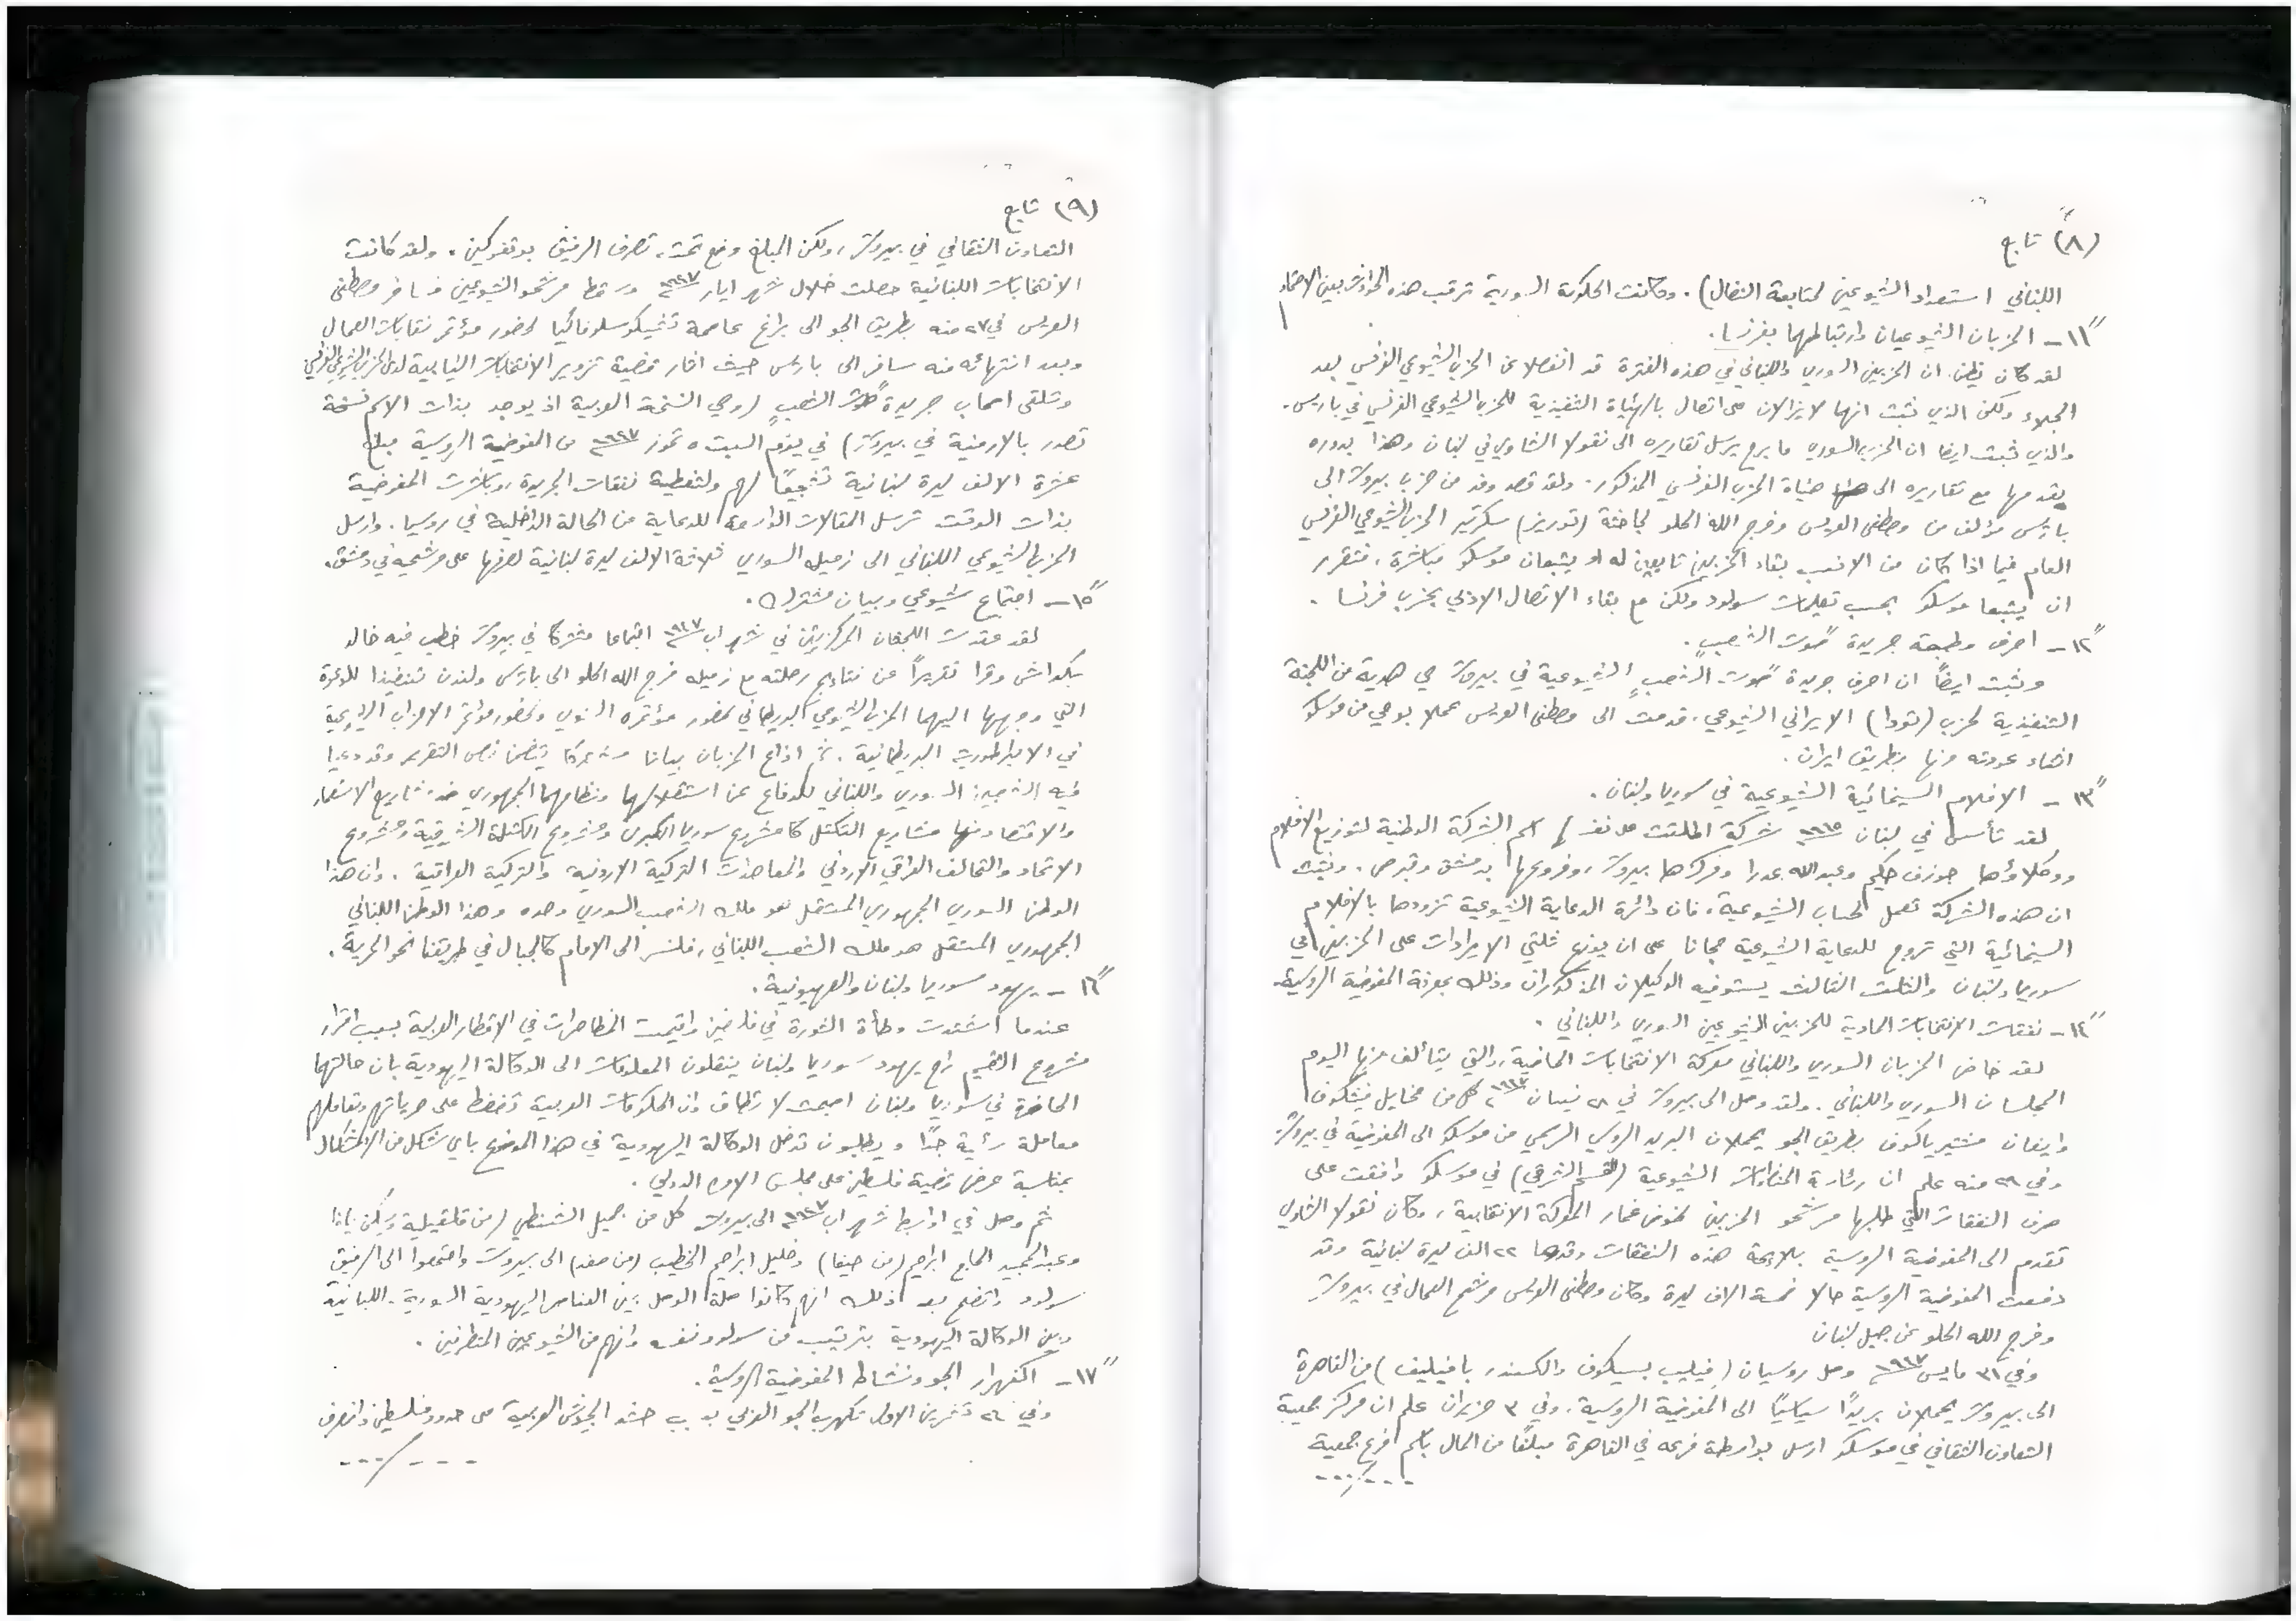 (٨) تابع
اللبناني استعداد الشيوعيين لمتابعة النضال). وكانت الحكومة السورية ترقب هذه الحوادث بعين الاهتمام
١١ً - الحزبان الشيوعيان وارتباطهما بفرنسا.
لقد كان يظن ان الحزبين السوري واللبناني في هذه الفترة قد انفصلا عن الحزب الشيوعي الفرنسي بعد
الجلاء ولكن الذي ثبت انهما لا يزالان على اتصال بالهيئة التنفيذية للحزب الشيوعي الفرنسي في باريس.
والذي ثبت ايضا ان الحزب السوري ما برح يرسل تقاريره الى نقولا الشاوي في لبنان وهذا بدوره
يقدمها مع تقاريره الى هيئة الحزب الفرنسي المذكور. ولقد قصد وفد من حزب بيروت الى
باريس مؤلف من مصطفى العريس وفرج الله الحلو لمباحثة (توريز) سكرتير الحزب الشيوعي الفرنسي
العام فيما اذا كان من الانسب بقاء الحزبين تابعين له او يتبعان موسكو مباشرة، فتقرر
ان يتبعا موسكو بحسب تعليمات سولود ولكن مع بقاء الاتصال الادبي بحزب فرنسا.
١٢ً - احرف مطبعة جريدة "صوت الشعب".
وثبت ايضاً ان احرف جريدة "صوت الشعب" الشيوعية في بيروت هي هدية من اللجنة
التنفيذية لحزب (تودا) الايراني الشيوعي، قدمت الى مصطفى العريس عملا بوحي من موسكو
اثناء عودته منها بطريق ايران.
١٣ً - الافلام السينمائية الشيوعية في سوريا ولبنان.
لقد تأسس في لبنان ١٩٤٥ شركة اطلقت على نفسها اسم الشركة الوطنية لتوزيع الافلام
ووكلاؤها جوزف حكيم وعبدالله عدرا ومركزها بيروت، وفروعها بدمشق وقبرص. وثبت
ان هذه الشركة تعمل لحساب الشيوعية، فان دائرة الدعاية الشيوعية تزودها بالافلام
السينمائية التي تروج للدعاية الشيوعية مجانا على ان يوزع ثلثي الايرادات على الحزبين في
سوريا ولبنان والثلث الثالث يستوفيه الوكيلان المذكوران وذلك بمعرفة المفوضية الروسية.
١٤ً - نفقات الانتخابات المادية للحزبين الشيوعيين السوري واللبناني.
لقد خاض الحزبان السوري واللبناني معركة الانتخابات الماضية، والتي يتألف منها اليوم
المجلسان السوري واللبناني. ولقد وصل الى بيروت في ٢٨ نيسان ١٩٤٧ كل من
وايفان بطريق الجو يحملان البريد الروسي الرسمي من موسكو الى المفوضية في بيروت.
وفي ٢٩ منه علم ان الشيوعية (القسم الشرقي) في موسكو وافقت على
صرف النفقات التي طلبها مرشحو الحزبين لخوض غمار المعركة الانتخابية، وكان نقولا الشاوي
تقدم الى المفوضية الروسية بلائحة هذه النفقات وقدرها ٢٢ الف ليرة لبنانية وقد
دفعت المفوضية الروسية حالا خمسة الاف ليرة وكان مصطفى العريس مرشح العمال في بيروت
وفرج الله الحلو عن جبل لبنان
وفي ٣١ مايس ١٩٤٧ وصل روسيان (فيليب بسيكوف والكسندر بافيليف) من القاهرة
الى بيروت يحملان بريداً سياسياً الى المفوضية الروسية. وفي ٣ حزيران علم ان مركز جمعية
التعاون الثقافي في موسكو ارسل بواسطة فرعه في القاهرة مبلغاً من المال باسم فرع جمعية
---/---
(٩) تابع
التعاون الثقافي في بيروت، ولكن المبلغ وضع تحت تصرف الرفيق بوتفوكين. ولقد كانت
الانتخابات اللبنانية حصلت خلال شهر ايار ١٩٤٧ وسقط مرشحو الشيوعيين وسافر مصطفى
العريس في ٢٧ منه بطريق الجو الى براغ عاصمة تشيكوسلوفاكيا لحضور مؤتمر نقابات العمال
وبعد انتهائه منه سافر الى باريس حيث اثار قضية تزوير الانتخابات النيابية لدى الحزب الشيوعي الفرنسي
وتلقى اصحاب جريدة "صوت الشعب" (وهي النسخة العربية اذ يوجد بذات الاسم نسخة
تصدر بالارمنية في بيروت) في يوم السبت ٥ تموز ١٩٤٧ من المفوضية الروسية مبلغ
عشرة الاف ليرة لبنانية تشجيعاً لهم ولتغطية نفقات الجريدة، وباشرت المفوضية
بذات الوقت ترسل المقالات الواسعة للدعاية عن الحالة الداخلية في روسيا. وارسل
الحزب الشيوعي اللبناني الى زميله السوري ثلاثة الاف ليرة لبنانية لصرفها على مرشحيه في دمشق.
١٥ً - اجتماع شيوعي وبيان مشترك.
لقد عقدت اللجنتان المركزيتين في شهر اب ١٩٤٧ اجتماعا مشتركا في بيروت خطب فيه خالد
بكداش وقرا تقريراً عن نتايج رحلته مع زميله فرج الله الحلو الى باريس ولندن تنفيذا للدعوة
التي وجهها اليهما الحزب الشيوعي البريطاني لحضور مؤتمره السنوي ولحضور مؤتمر الاحزاب الشيوعية
في الامبراطورية البريطانية. ثم اذاع الحزبان بيانا مشتركا يتضمن نص التقرير وقد دعيا
فيه الشعبين السوري واللبناني للدفاع عن استقلالهما ونظامهما الجمهوري ضد مشاريع الاستعمار
والاقتصاد ومنها مشاريع التكتل كمشروع سوريا الكبرى ومشروع الكتلة الشرقية ومشروع
الاتحاد والتحالف العراقي الاردني والمعاهدات التركية الاردنية والتركية العراقية. وان هذا
الوطن السوري الجمهوري المستقل هو ملك الشعب السوري وحده وهذا الوطن اللبناني
الجمهوري المستقل هو ملك الشعب اللبناني، فلنسر الى الامام كالجبال في طريقنا نحو الحرية.
١٦ً - يهود سوريا ولبنان والصهيونية.
عندما اشتدت وطأة الثورة في فلسطين واقيمت المظاهرات في الاقطار العربية بسبب اقرار
مشروع التقسيم راح يهود سوريا ولبنان ينقلون المعلومات الى الوكالة اليهودية بان حالتهما
الحاضرة في سوريا ولبنان اصبحت لا تطاق وان الحكومات العربية تضغط على حرياتهم وتعاملهم
معاملة سيئة جداً ويطلبون تدخل الوكالة اليهودية في هذا الموضوع باي شكل من الاشكال
بمناسبة عرض قضية فلسطين على مجلس الامن الدولي.
ثم وصل في اواسط شهر اب ١٩٤٧ الى بيروت كل من جميل الشنطي (من قلقيلية ويسكن يافا)
وعبدالمجيد الحاج ابراهيم (من حيفا) وخليل ابراهيم الخطيب (من صفد) الى بيروت واجتمعوا الى الرفيق
سولود واتضح بعد ذلك انهم كانوا صلة الوصل بين العناصر اليهودية السورية - اللبنانية
وبين الوكالة اليهودية بترتيب من سولود نفسه وانهم من الشيوعيين المتطرفين.
١٧ً - اكفهرار الجو ونشاط المفوضية الروسية.
وفي ٢٦ تشرين الاول تكهرب الجو العربي بسبب حشد الجيوش العربية على حدود فلسطين وانصرف
---/---